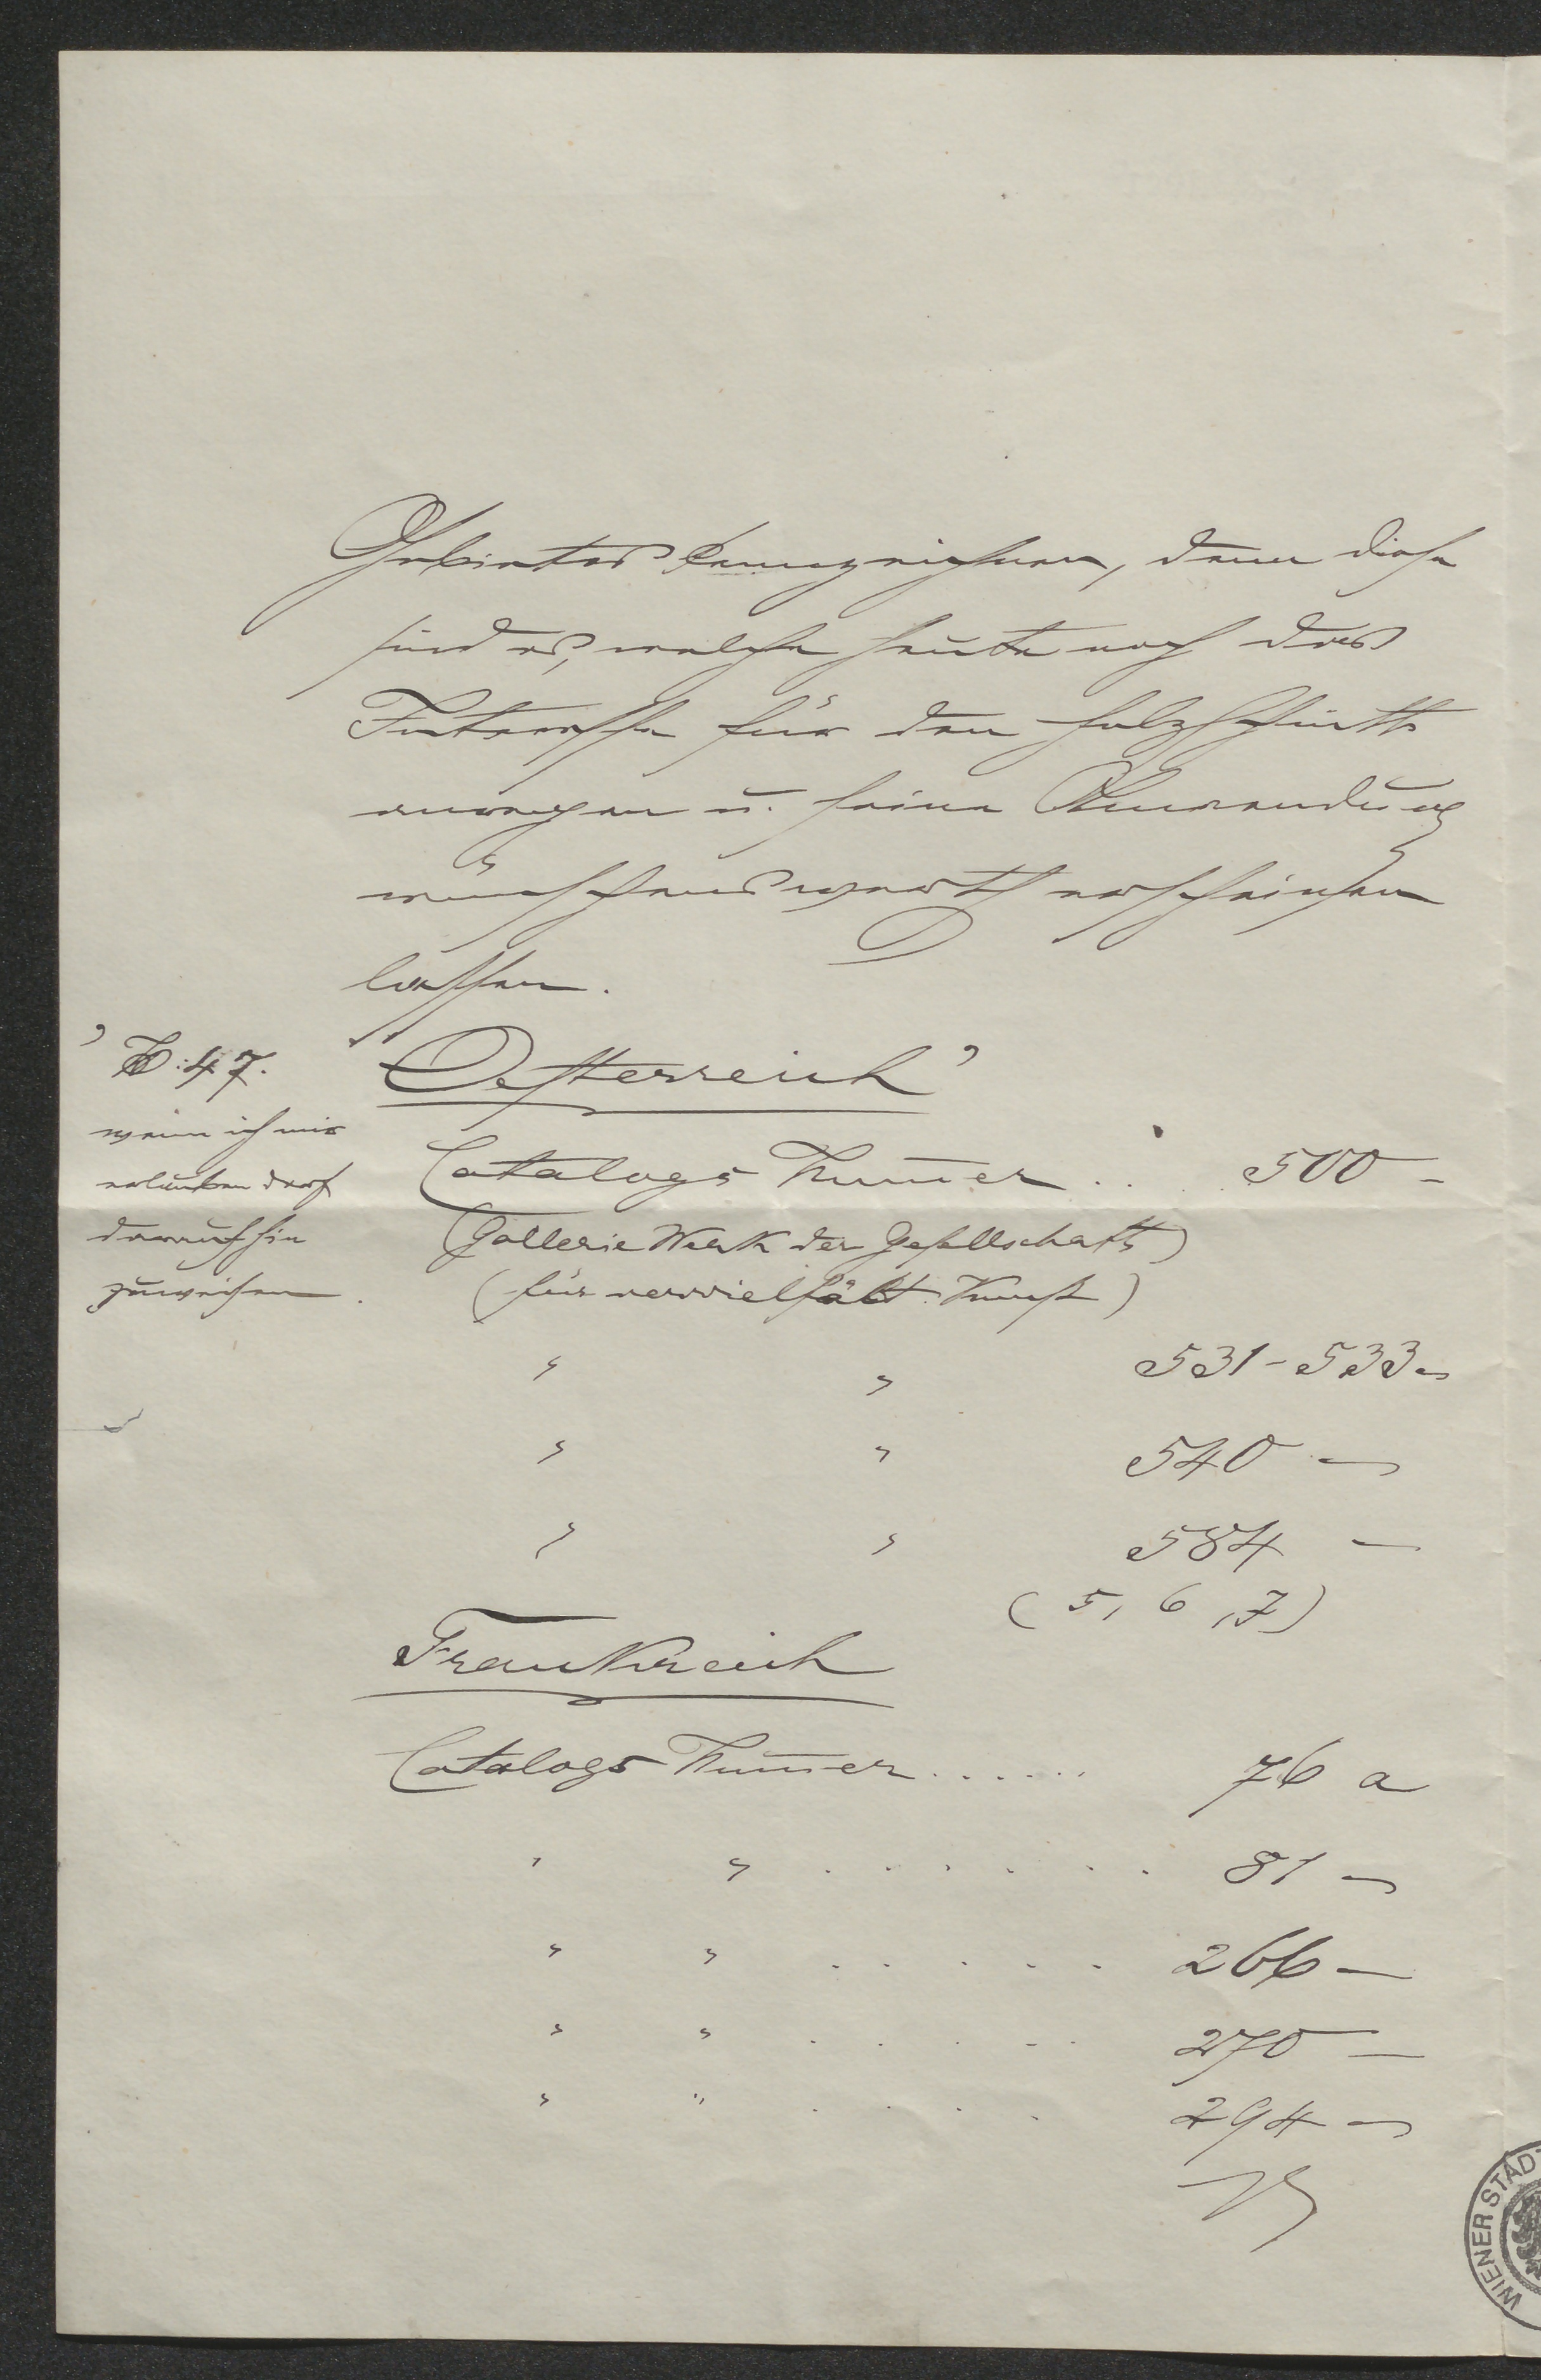 Gebietes kennzeichnen, denn diese
sind es, welche heute noch das
Interesse für den Holzschnitt
anregen u. seine Anwendung
wünschenswerth erscheinen
lassen.
Oesterreich
47.
wenn ich mir
erlauben darf
darauf hin
zuweisen.
Catalogs Num̅er . . . 500 -
(Gallerie Werk der Gesellschaft)
(für vervielfält. Kunst)
" " 531-533 -
" " 540 -
" " 584 -
(5, 6, 7)
Frankreich
Catalogs Num̅er . . . . . . 76 a
" " . . . . . . 81 -
" " . . . . . 266 -
" " . . . . . 270 -
" " . . . . 294 -
WIENER STÄD